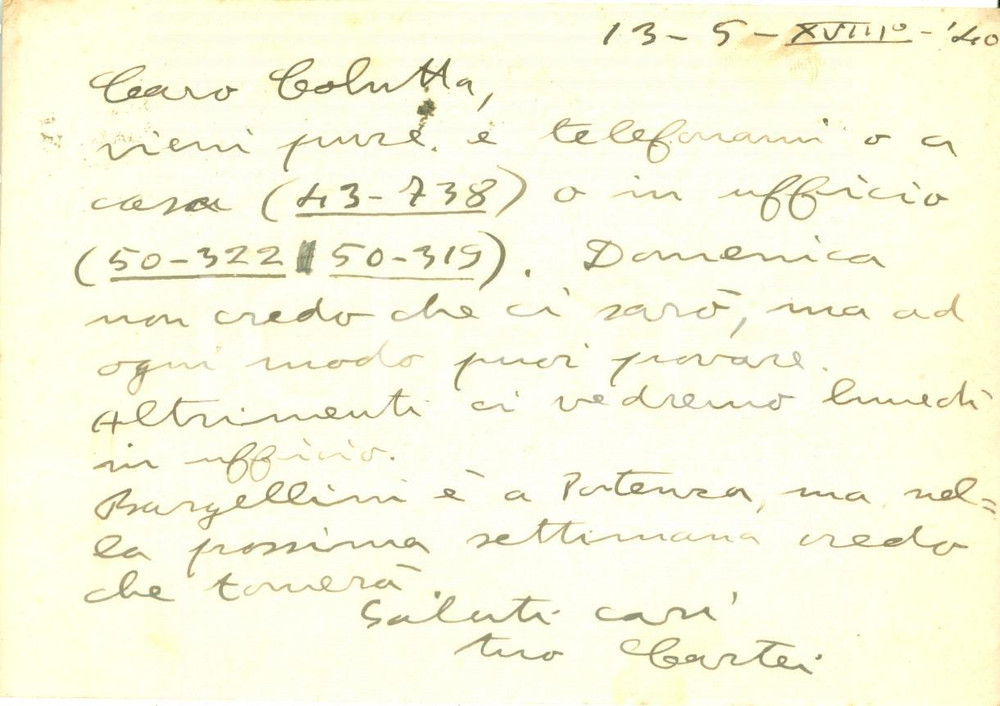 13-5-XVIII°-'40
Caro Colutta,
vieni pure. e telefonami o a
casa (43-738) o in ufficio
(50-322 50-319). Domenica
non credo che ci sarò, ma ad
ogni modo puoi provare.
Altrimenti ci vedremo lunedì
in ufficio.
Bargellini è a Potenza, ma nel=
la prossima settimana credo
che tornerà.
Saluti cari
tuo Cartei